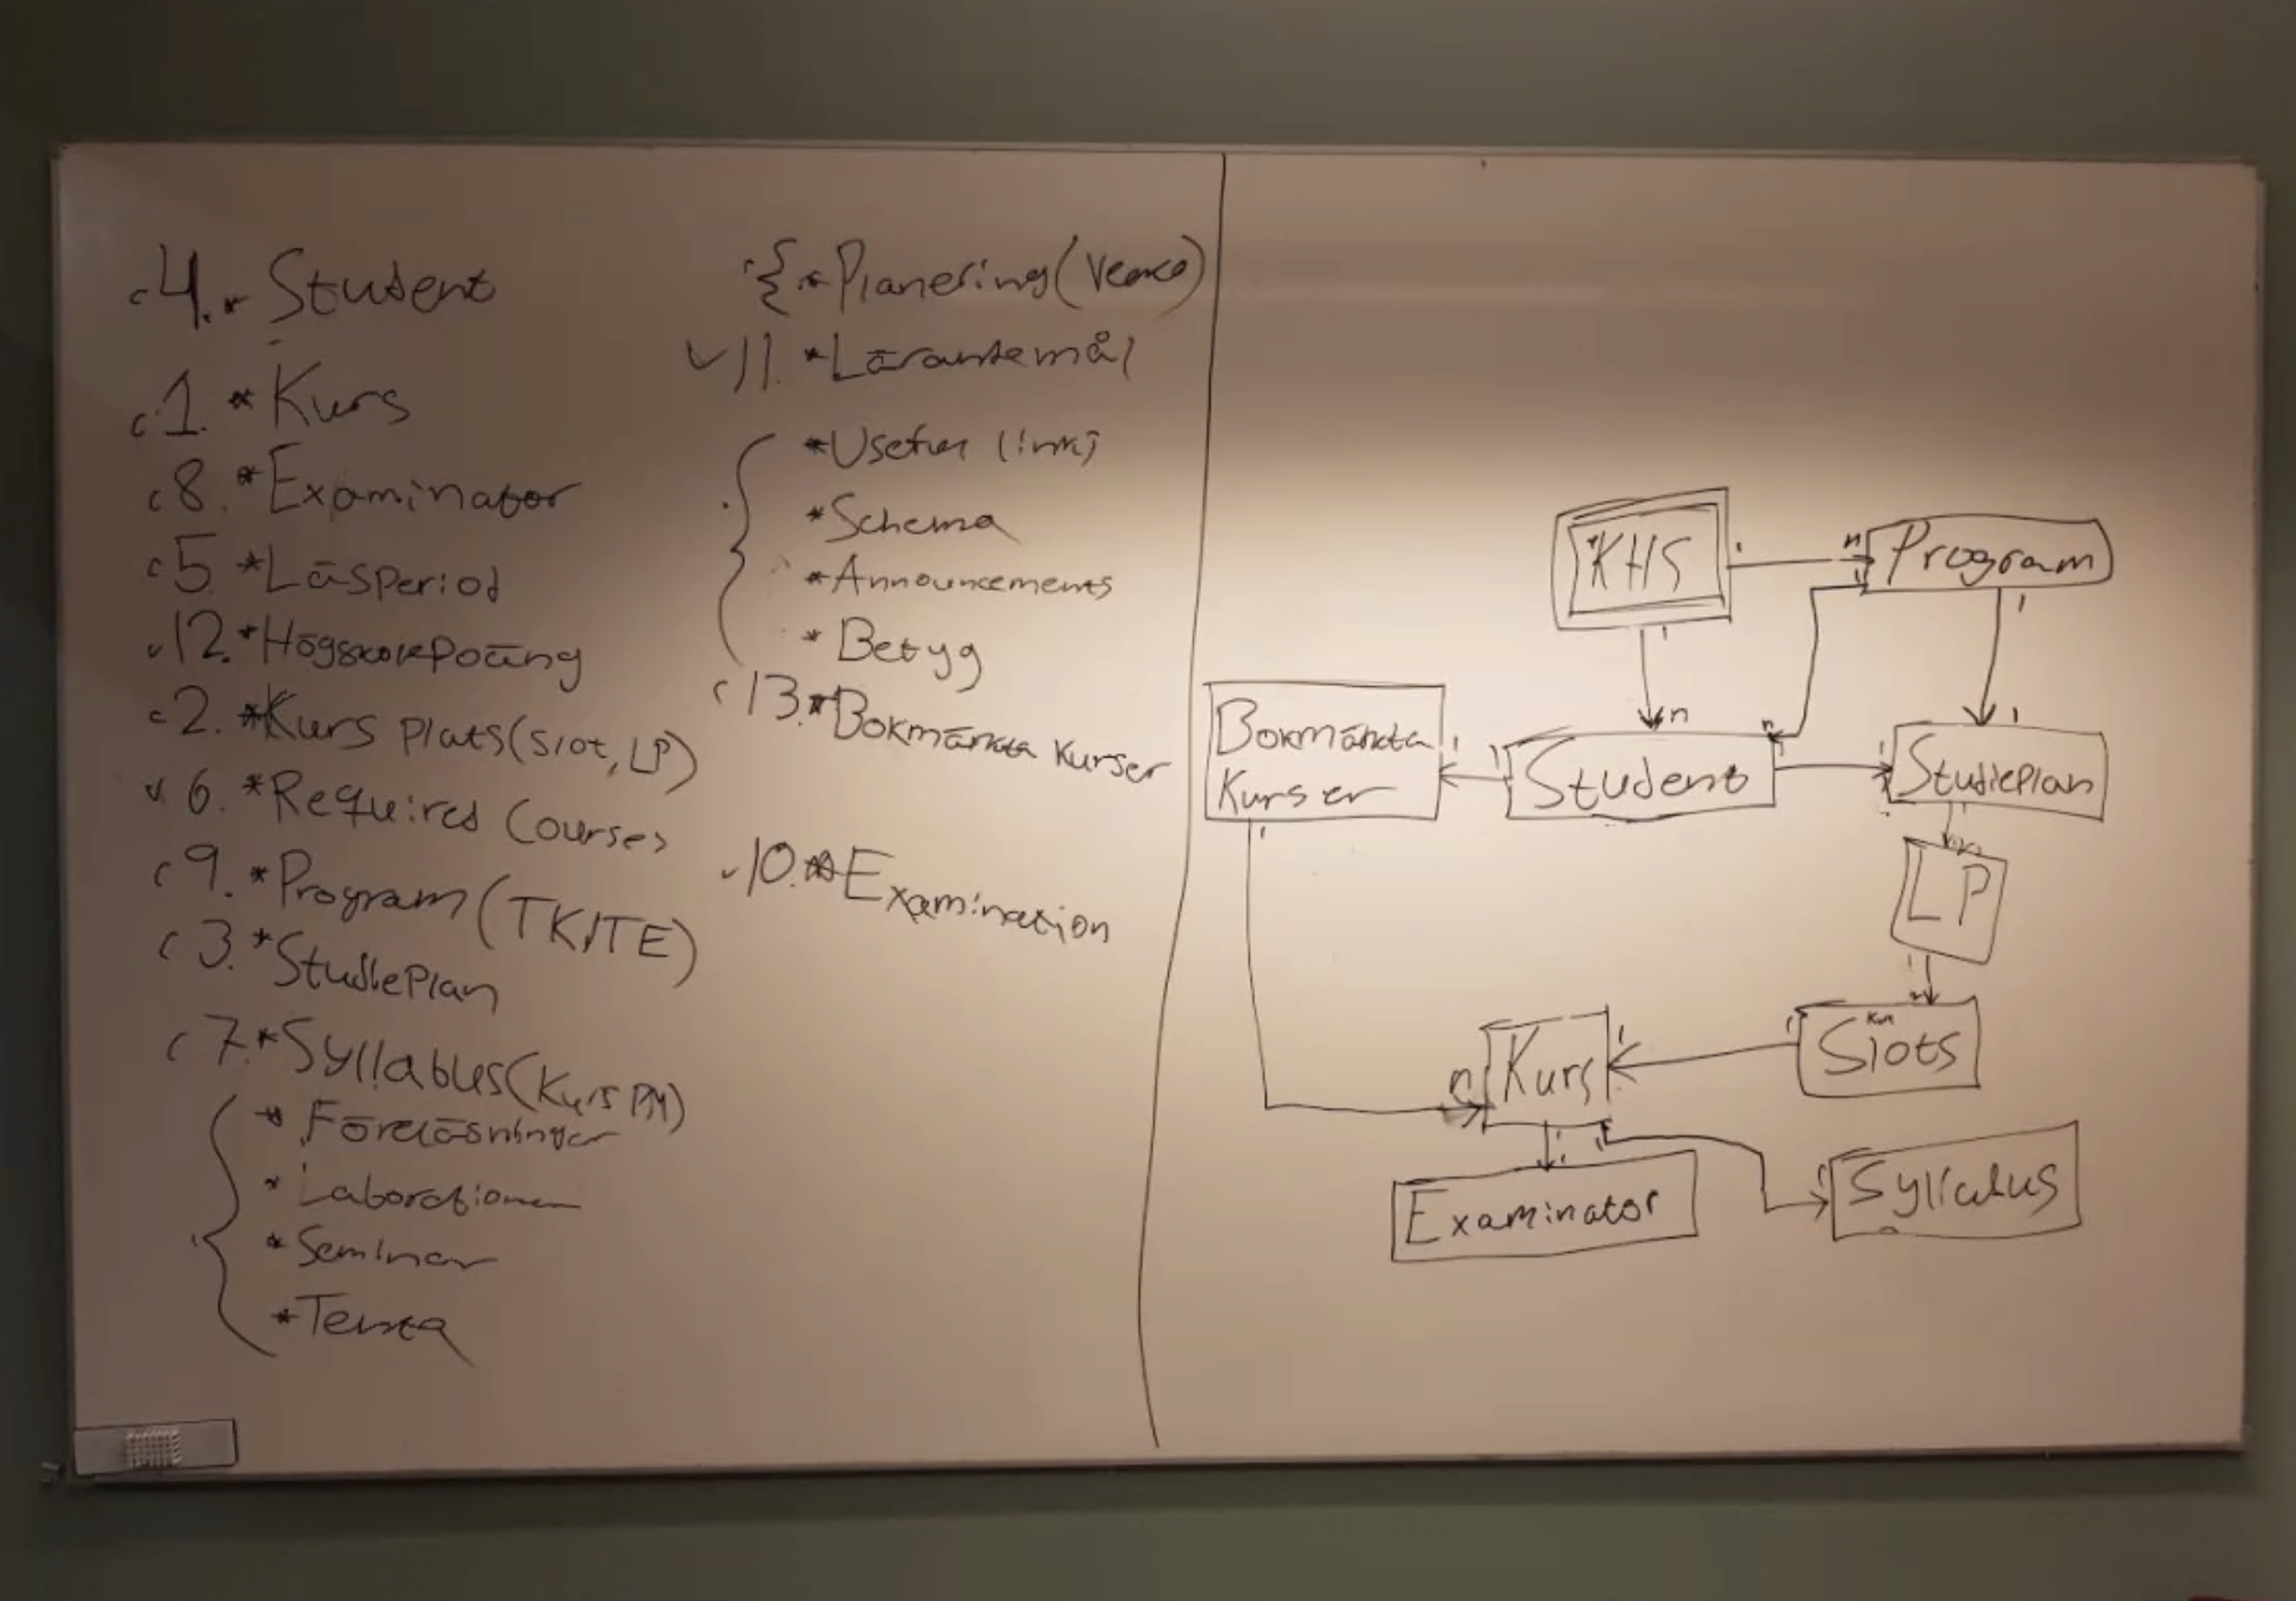 c 4. * Student
c 1. * Kurs
c 8. * Examinator
c 5 * Läsperiod
v 12. * Högskolepoäng
c 2. * Kurs plats (slot, LP)
v 6. * Required Courses
c 9. * Program (TKITE)
c 3. * Studieplan
c 7. * Syllabus (Kurs PM)
* Föreläsningar
* Laborationer
* Seminar
* Tenta
{ * Planering (Vecko)
v 11. * Lärandemål
* Useful links
* Schema
* Announcements
* Betyg
c 13. * Bokmärkta Kurser
v 10. * Examination
KHS
1
n
Program
1
n
1
1
n
n
1
Bokmärkta
Kurser
1
1
Student
1
1
Studieplan
1
n
LP
1
n
Kurs
Slots
1
1
Kurs
n
1
1
1
Examinator
1
Syllabus